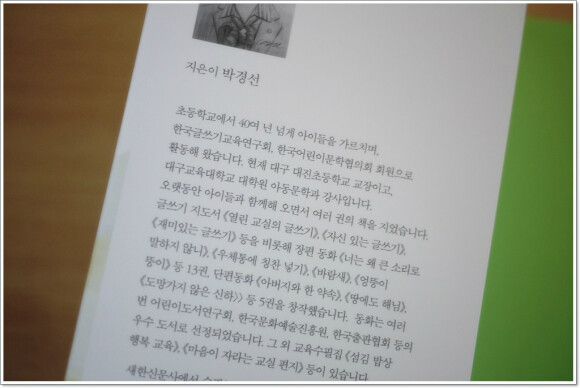 지은이 박경선
초등학교에서 40여 년 넘게 아이들을 가르치며,
한국글쓰기교육연구회, 한국어린이문학협의회 회원으로
활동해 왔습니다. 현재 대구 대진초등학교 교장이고,
대구교육대학교 대학원 아동문학과 강사입니다.
오랫동안 아이들과 함께해 오면서 여러 권의 책을 지었습니다.
글쓰기 지도서 《열린 교실의 글쓰기》, 《자신 있는 글쓰기》,
《재미있는 글쓰기》 등을 비롯해 장편 동화 《너는 왜 큰 소리로
말하지 않니》, 《우체통에 칭찬 넣기》, 《바람새》, 《엉뚱이
뚱이》 등 13권, 단편동화 《아버지와 한 약속》, 《땅에도 해님》,
《도망가지 않은 신하》 등 5권을 창작했습니다. 동화는 여러
번 어린이도서연구회, 한국문화예술진흥원, 한국출판협회 등의
우수 도서로 선정되었습니다. 그 외 교육수필집 《섬김 밥상
행복 교육》, 《마음이 자라는 교실 편지》 등이 있습니다.
새한신문사에서